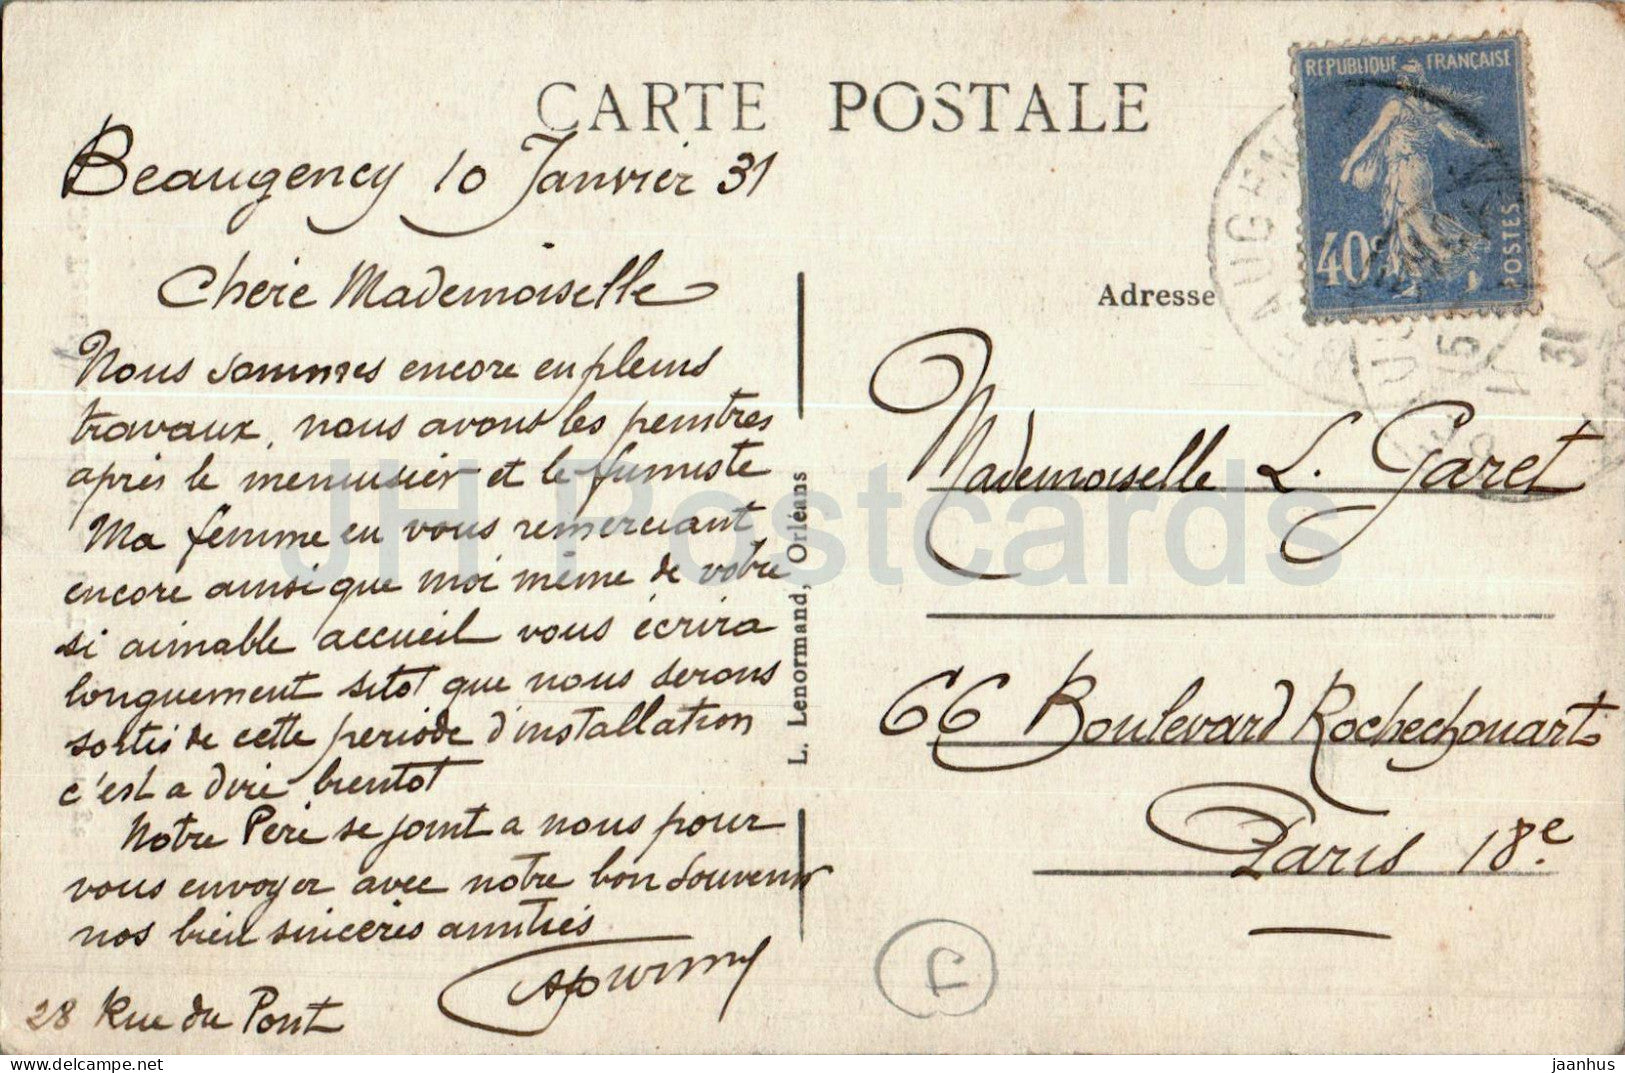 CARTE POSTALE
Beaugency 10 Janvier 31
Chère Mademoiselle
Nous sommes encore en pleins
travaux, nous avons les peintres
après le menuisier et le fumiste
Ma femme en vous remerciant
encore ainsi que moi même de votre
si aimable accueil vous écrira
longuement sitot que nous serons
sortis de cette periode d'installation
c'est a dire bientot
Notre Père se joint a nous pour
vous envoyer avec notre bon souvenir
nos bien sincères amitiés
28 Rue du Pont
L. Lenormand, Orléans
REPUBLIQUE FRANÇAISE
40c
POSTES
Adresse
Mademoiselle L. Garet
66 Boulevard Rochechouart
Paris 18e
JH Postcards
delcampe.net
jaanhus